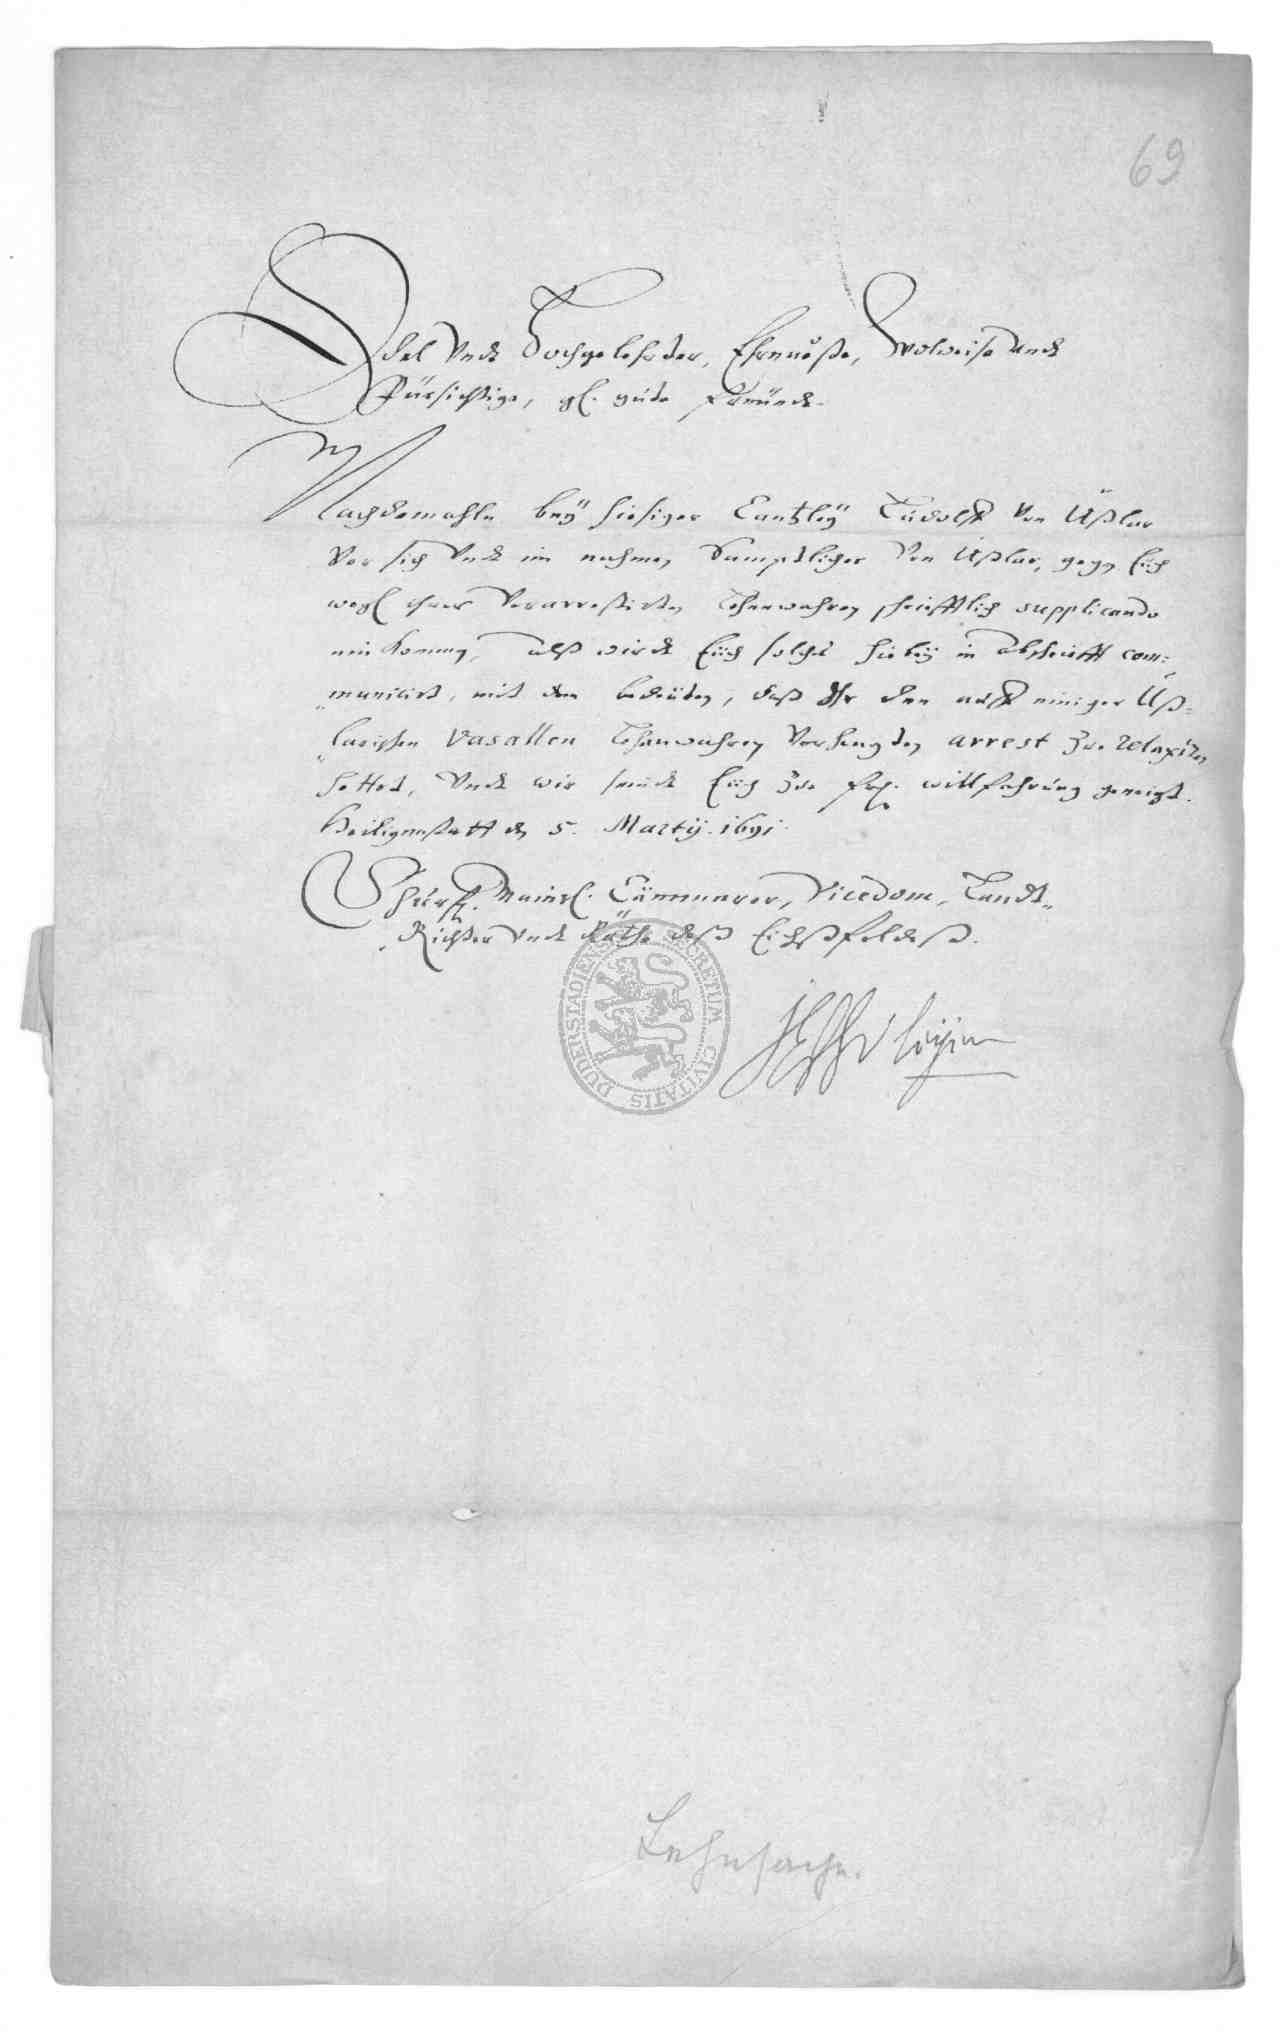 69
Edel Undt Hochgelehrter, Ehrnveste, Wolweise undt
Fürsichtige, gl. gute Freündt.
Nachdemahln beÿ hiesiger Cantzleÿ Ludolff von Ußlar
vor sich Undt im nahmen Sämptlicher von Ußlar, gegen Eüch
wegl ihrer verarrestirten Lehnwahren schrifftlich supplicando
ein kommen, Alß wirdt Eüch solches hiebeÿ in Abschrifft com:
municirt, mit dem bedeüten, daß Ihr den auff einiger Uß=
larischen Vasallen Lehnwahren verhengten arrest Zue relaxiren
hettet, Undt wir seindt Eüch Zue willfahrung geneigt.
Heiligenstatt den 5. Martij. 1691.
Churf. Maintz. Cämmerer, Vicedom, Landt=
Richter undt Räthe deß Eichßfeldeß.
SECRETUM CIVITATIS DUDERSTADIENSIS
Lehnsache.